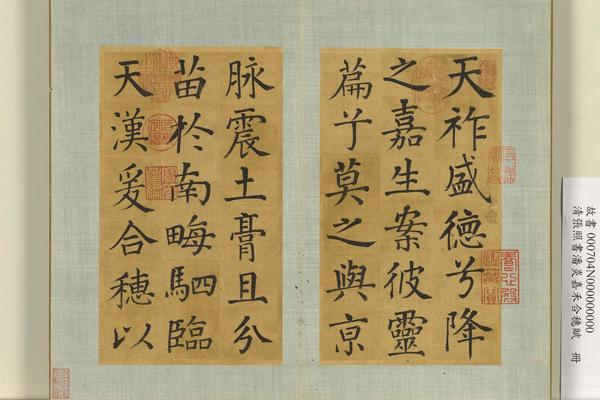 天祚盛德兮降
之嘉生案彼靈
篇兮莫之與京
脉震土膏且分
苗於南畮駟臨
天漢爰合穗以
故書 000704N000000000
清張照書潘炎嘉禾合穗賦　冊